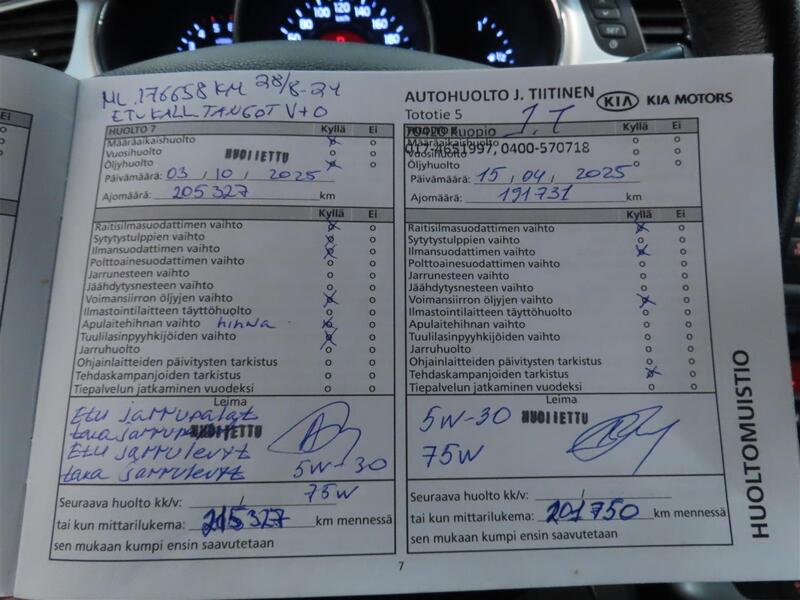 ML.176658 KM 28/8-24
ETU KALL.TANGOT V+O
HUOLTO 7
Kyllä Ei
Määräaikaishuolto
Vuosihuolto
HUOLLETTU
Öljyhuolto
Päivämäärä: 03 , 10 , 2025
Ajomäärä: 205327 km
Kyllä Ei
Raitisilmasuodattimen vaihto
Sytytystulppien vaihto
Ilmansuodattimen vaihto
Polttoainesuodattimen vaihto
Jarrunesteen vaihto
Jäähdytysnesteen vaihto
Voimansiirron öljyjen vaihto
Ilmastointilaitteen täyttöhuolto
Apulaitehihnan vaihto hihna
Tuulilasinpyyhkijöiden vaihto
Jarruhuolto
Ohjainlaitteiden päivitysten tarkistus
Tehdaskampanjoiden tarkistus
Tiepalvelun jatkaminen vuodeksi
Leima
Etu jarrupalat
taka jarrupalat HUOLLETTU
Etu jarrulevyt
taka jarrulevyt 5W-30
75W
Seuraava huolto kk/v: /
tai kun mittarilukema: 215327 km mennessä
sen mukaan kumpi ensin saavutetaan
7
AUTOHUOLTO J. TIITINEN KIA KIA MOTORS
Tototie 5 J.T
70420 Kuopio
Kyllä Ei
Määräaikaishuolto
017-4651997, 0400-570718
Vuosihuolto
Öljyhuolto
Päivämäärä: 15 , 04 , 2025
Ajomäärä: 191731 km
Kyllä Ei
Raitisilmasuodattimen vaihto
Sytytystulppien vaihto
Ilmansuodattimen vaihto
Polttoainesuodattimen vaihto
Jarrunesteen vaihto
Jäähdytysnesteen vaihto
Voimansiirron öljyjen vaihto
Ilmastointilaitteen täyttöhuolto
Apulaitehihnan vaihto
Tuulilasinpyyhkijöiden vaihto
Jarruhuolto
Ohjainlaitteiden päivitysten tarkistus
Tehdaskampanjoiden tarkistus
Tiepalvelun jatkaminen vuodeksi
Leima
5W-30 HUOLLETTU
75W
Seuraava huolto kk/v: /
tai kun mittarilukema: 201750 km mennessä
sen mukaan kumpi ensin saavutetaan
HUOLTOMUISTIO